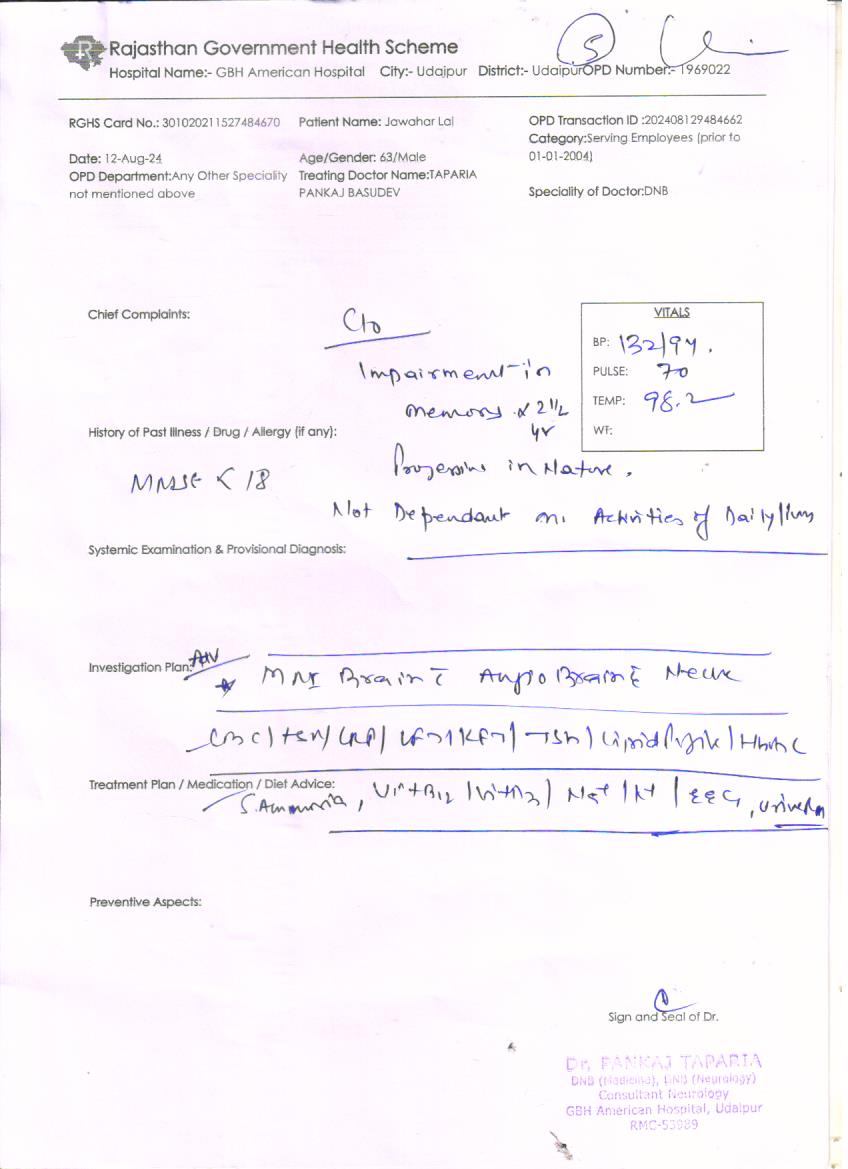 Rajasthan Government Health Scheme
5
Hospital Name:- GBH American Hospital City:- Udaipur District:- UdaipurOPD Number:- 1969022
RGHS Card No.: 301020211527484670 Patient Name: Jawahar Lal OPD Transaction ID :202408129484662
Category:Serving Employees (prior to
Date: 12-Aug-24 Age/Gender: 63/Male 01-01-2004)
OPD Department:Any Other Speciality Treating Doctor Name:TAPARIA
not mentioned above PANKAJ BASUDEV Speciality of Doctor:DNB
Chief Complaints: C/o
VITALS
BP: 132/94.
Impairment in PULSE: 70
memory x 2 1/2 TEMP: 98.2
yr
History of Past Illness / Drug / Allergy (if any): WT:
MMSE < 18
in Nature.
Not Dependant on Activities of Daily
Systemic Examination & Provisional Diagnosis:
Investigation Plan:
MRI Brain Angio Brain Neck
CBC/ESR/CRP/LFT/KFT/TSH/Lipid /HbA1c
Treatment Plan / Medication / Diet Advice:
S. Ammonia, Vit B12 / Vit D3 / Na+ / K+ / EEG,
Preventive Aspects:
Sign and Seal of Dr.
Dr. PANKAJ TAPARIA
DNB (Medicine), DNB (Neurology)
Consultant Neurology
GBH American Hospital, Udaipur